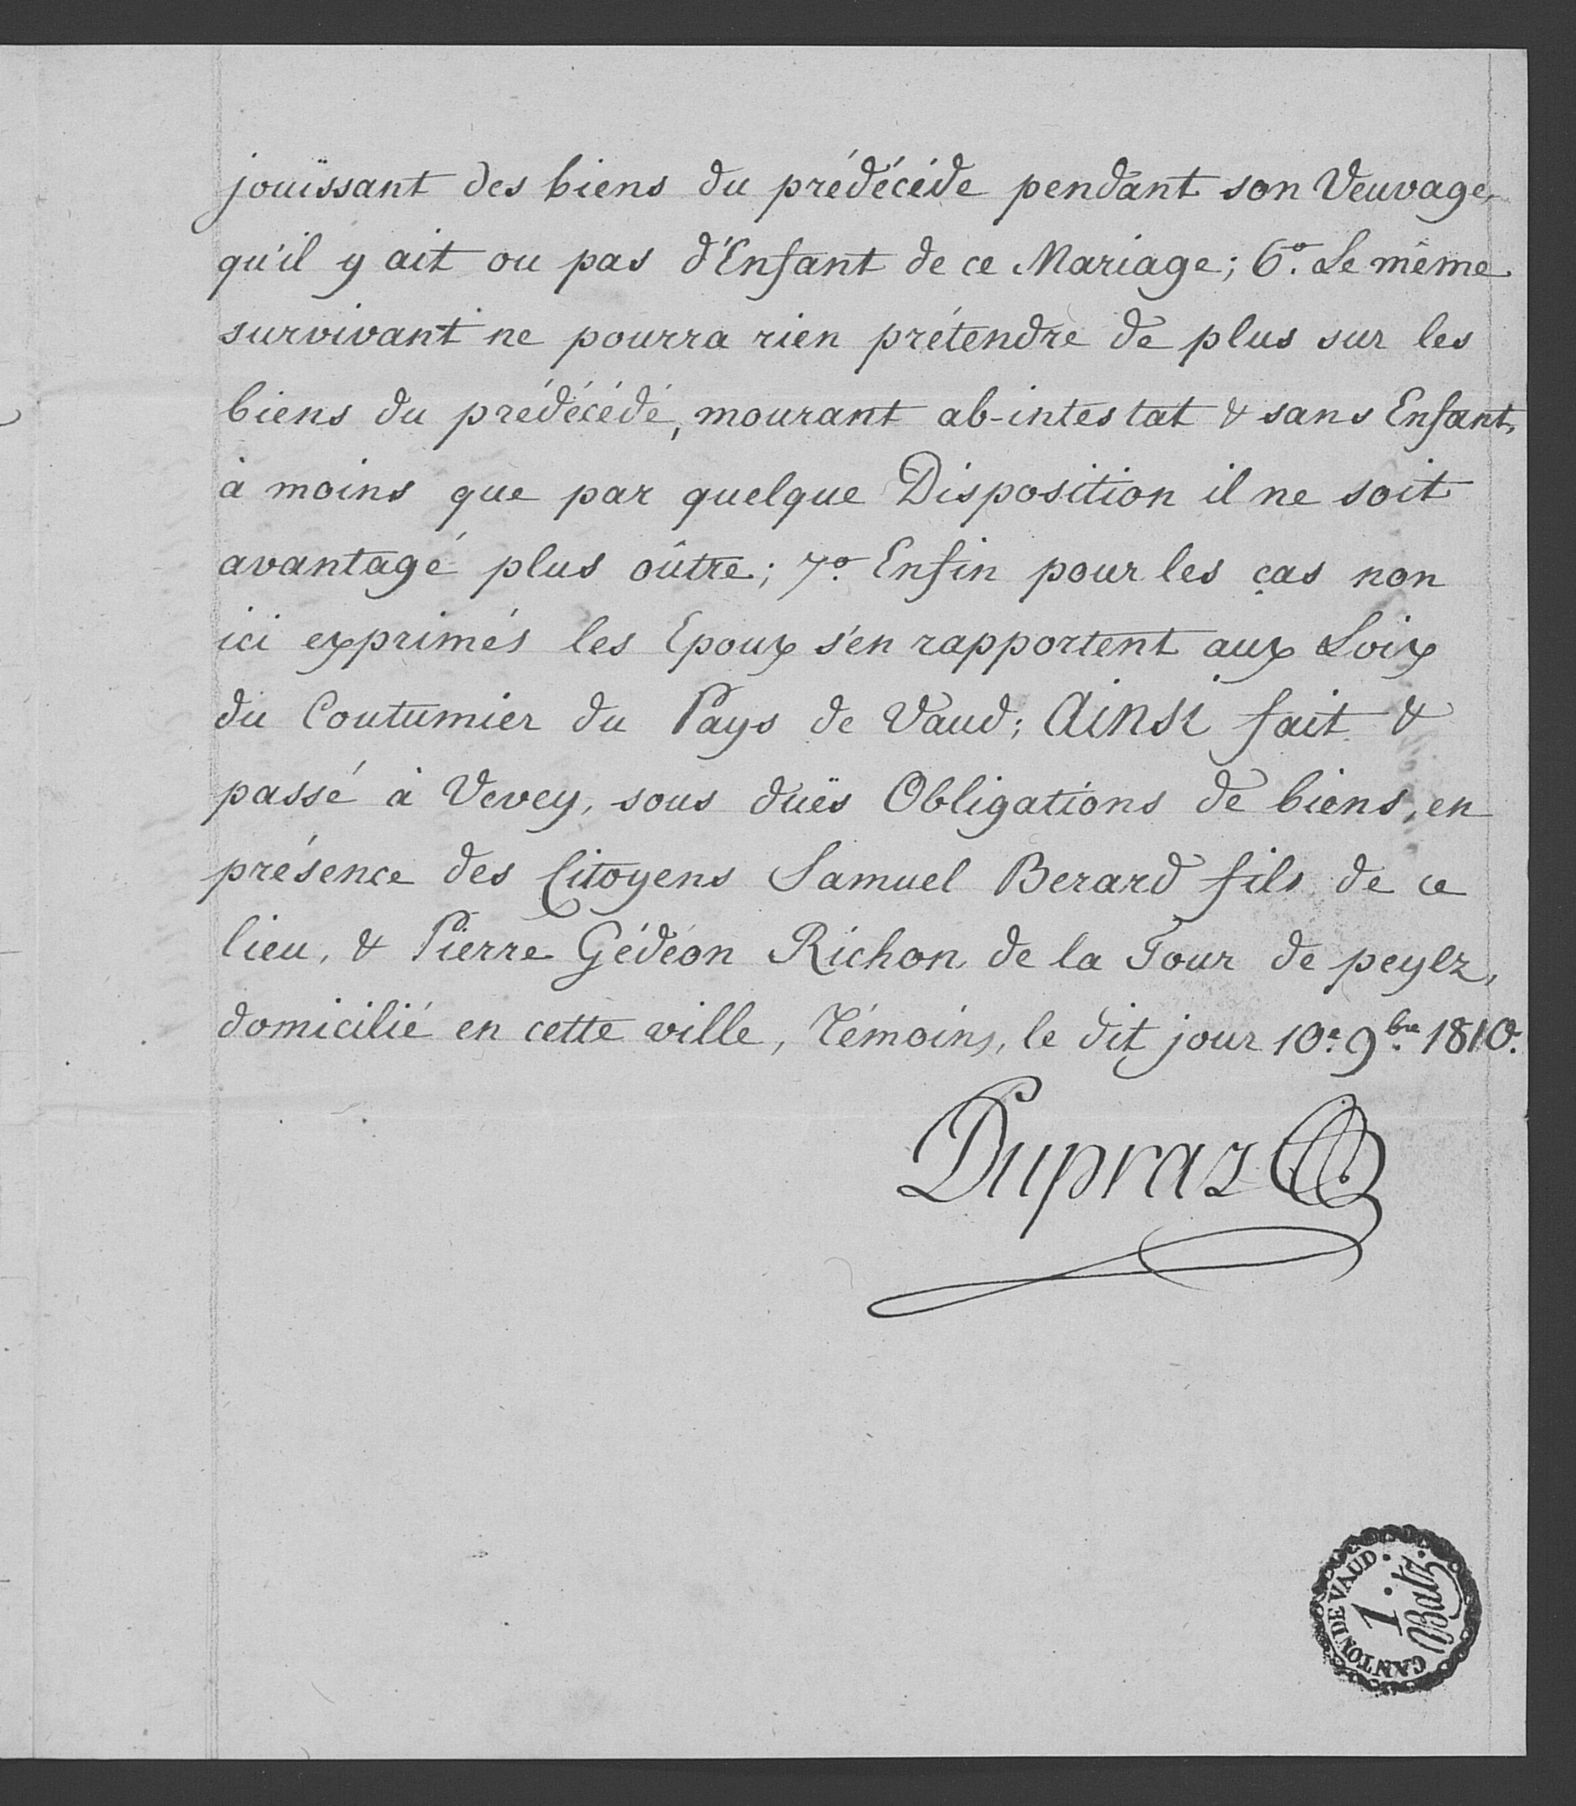 jouïssant des biens du prédécéde pendant son Veuvage,
qu'il y ait ou pas d'Enfant de ce Mariage; 6.º Le même
survivant ne pourra rien prétendre de plus sur les
biens du prédécédé, mourant ab-intestat & sans Enfant,
à moins que par quelque Disposition il ne soit
avantagé plus oûtre; 7.º Enfin pour les cas non
ici exprimés les Epoux s'en rapportent aux Loix
du Coutumier du Pays de Vaud; Ainsi fait &
passé à Vevey, sous duës Obligations de biens, en
présence des Citoyens Samuel Berard fils de ce
lieu, & Pierre Gédéon Richon de la Tour de peylz,
domicilié en cette ville, Témoins, le dit jour 10.e 9.bre 1810.
Dupraz
CANTON DE VAUD.
1.
Batz.